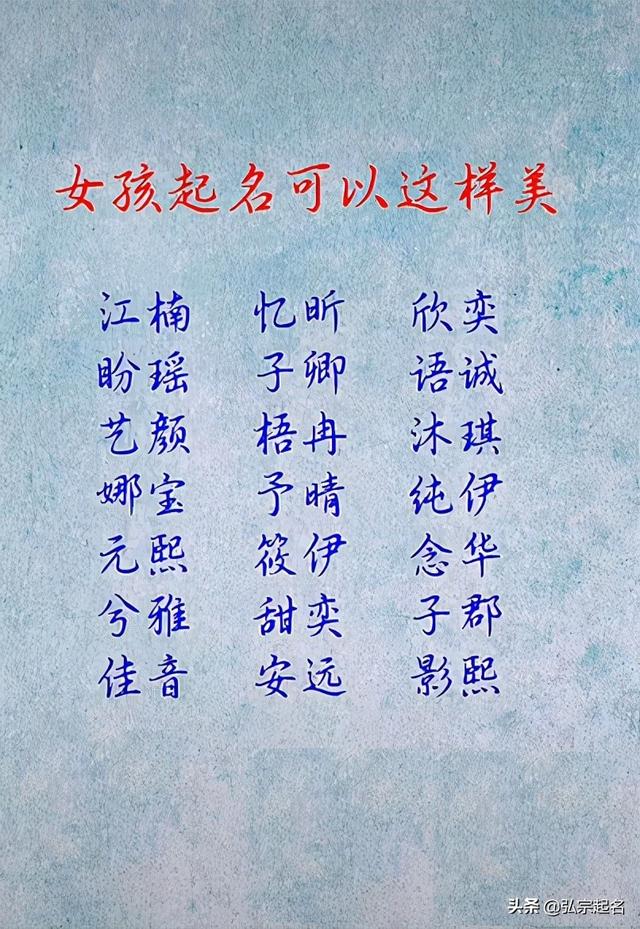 女孩起名可以这样美
江楠 忆昕 欣奕
盼瑶 子卿 语诚
艺颜 梧冉 沐琪
娜宝 予晴 纯伊
元熙 筱伊 念华
兮雅 甜奕 子郡
佳音 安远 影熙
头条 @弘宗起名